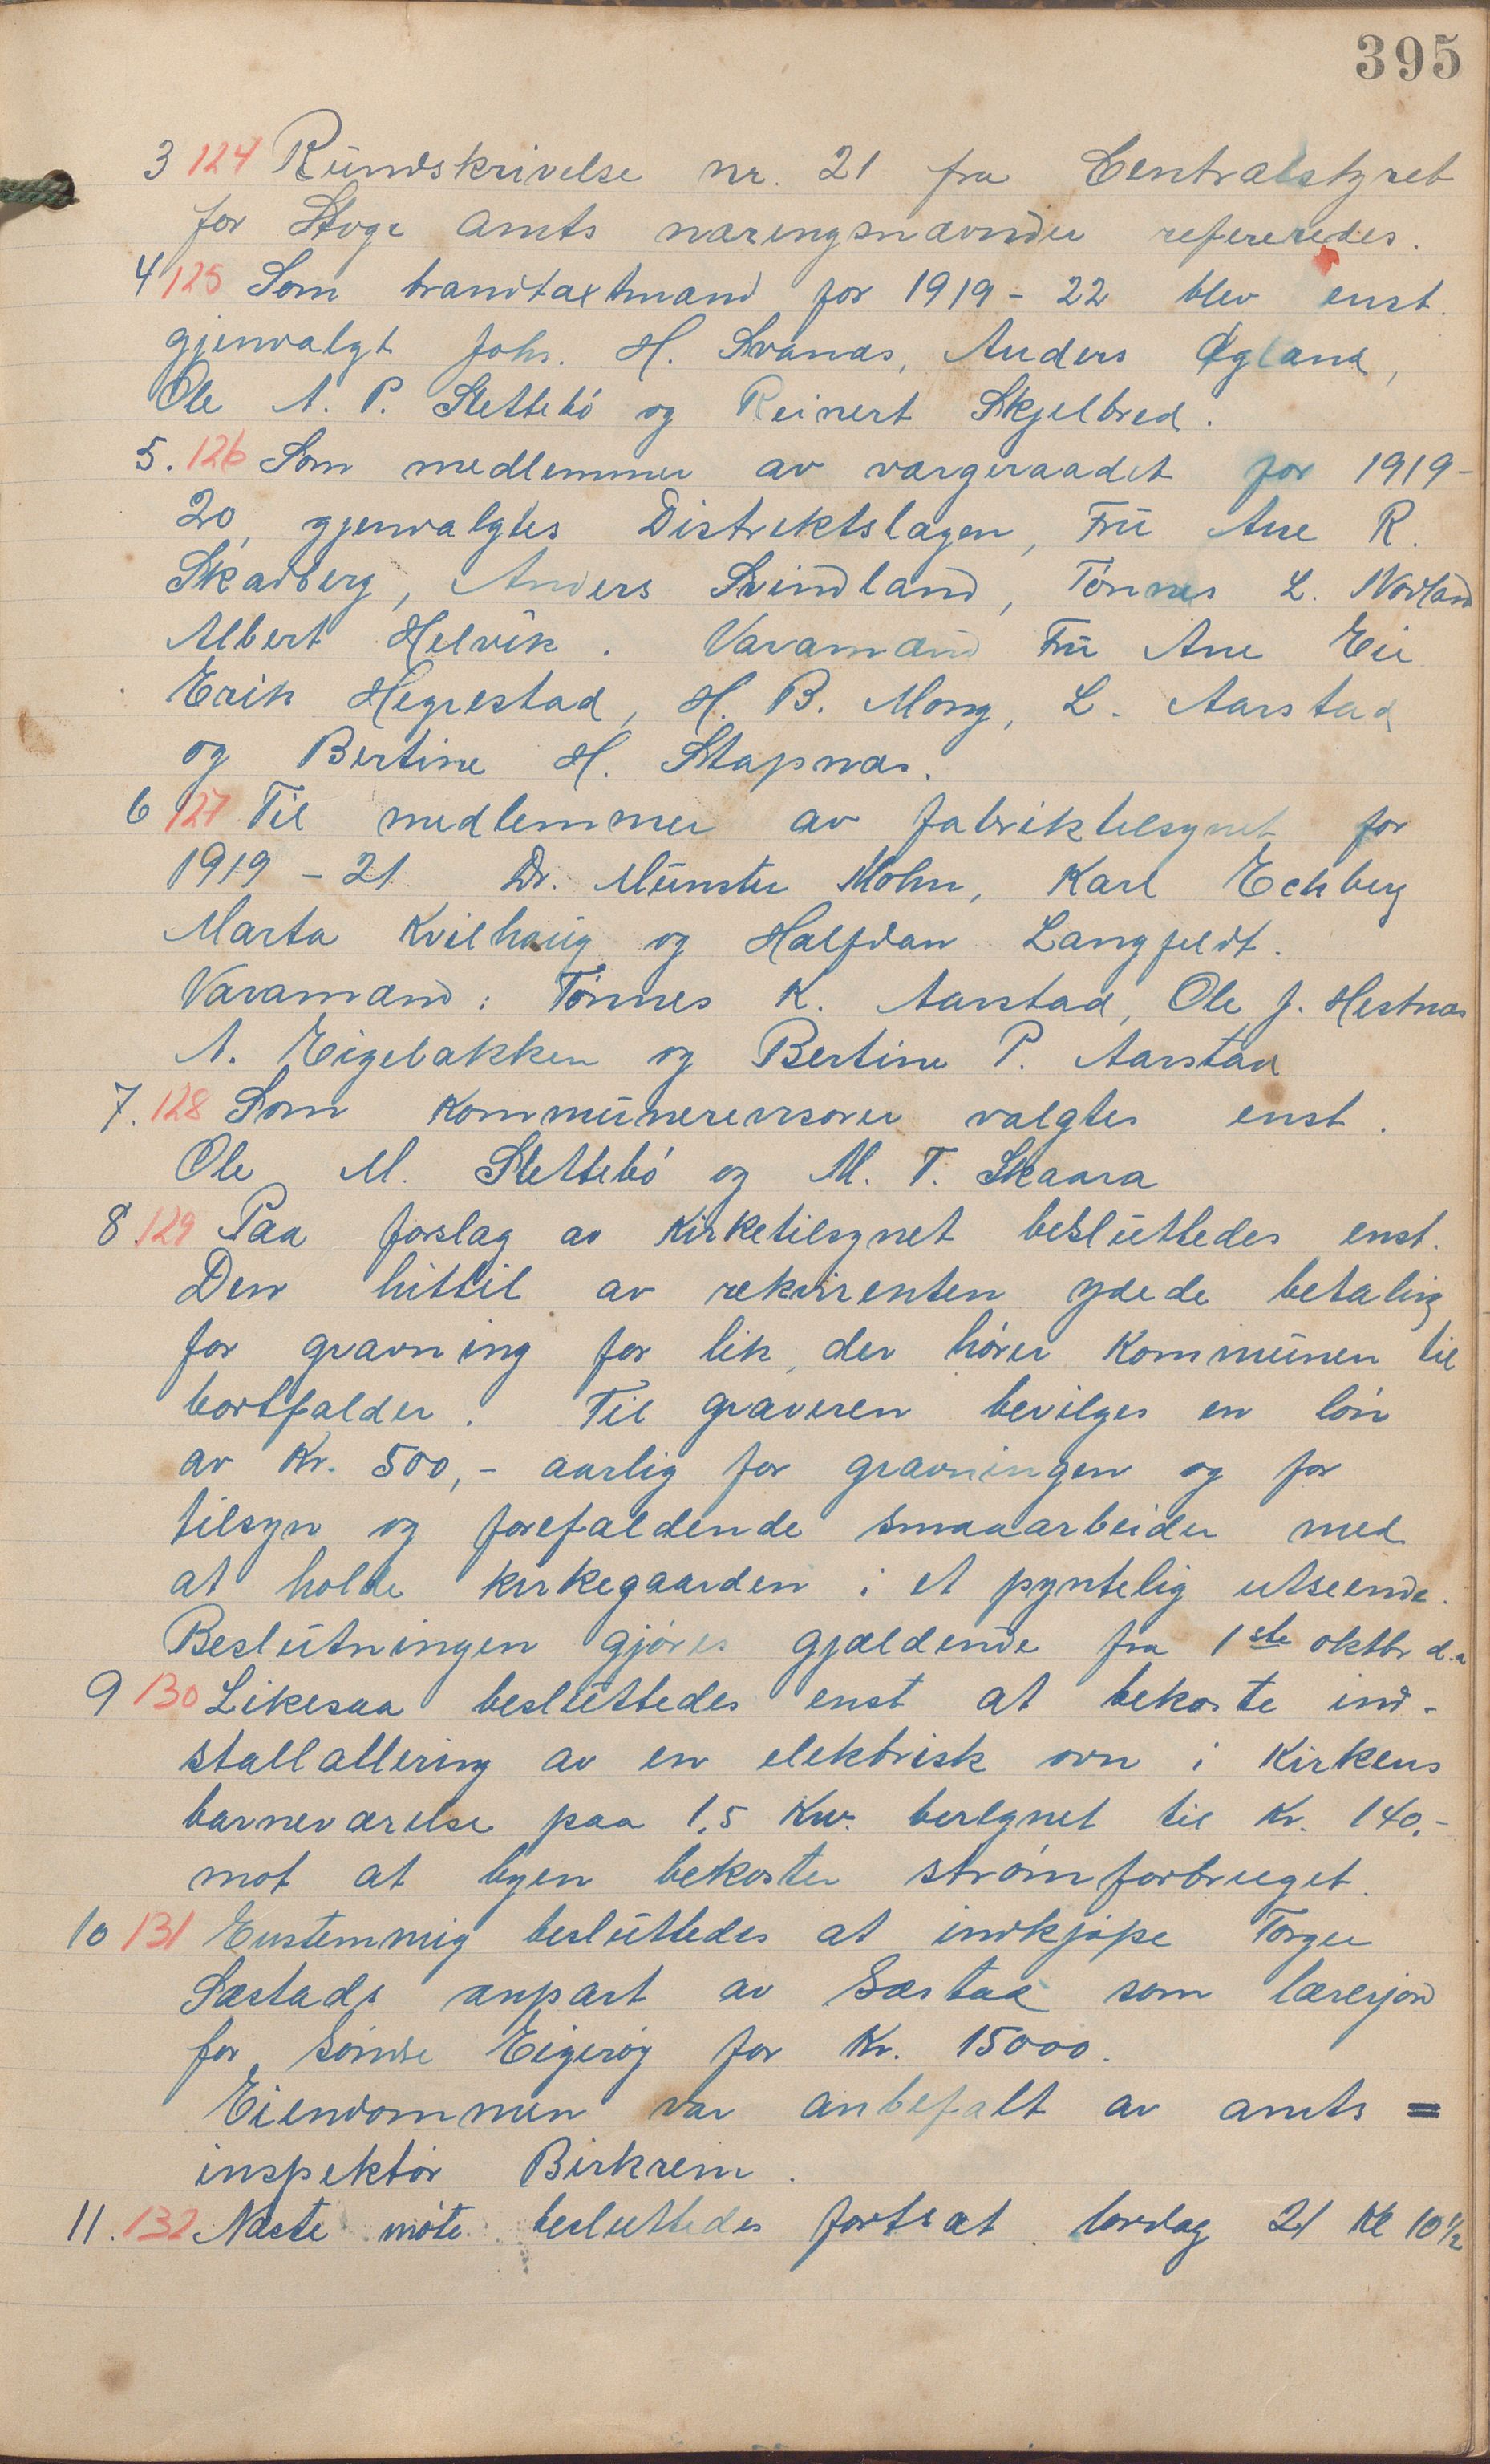 395
3 124 Rundskrivelse nr. 21 fra Centralstyret
for Stvgr amts næringsnævnder refereredes.
4 125 Som brandtaxtmænd for 1919 - 22 blev enst.
gjenvalgt Johs. H. Svanæs, Anders Øgland,
Ole A. P. Slettebö og Reinert Skjelbred.
5. 126 Som medlemmer av værgeraadet for 1919-
20, gjenvalgtes Distriktslægen, Fru Ane R.
Skadberg, Anders Svindland, Tönnes L. Nodland
Albert Helvik. Varamænd Fru Ane Eie
Erik Hegrestad, H. B. Mong, L. Aarstad
og Bertine H. Stapnæs.
6 127 Til medlemmer av fabriktilsynet for
1919 - 21 Dr. Münster Mohn, Karl Eckberg
Marta Kvilhaug og Halfdan Langfeldt.
Varamænd: Tönnes K. Aarstad, Ole J. Hestnæs
A. Eigebakken og Bertine P. Aarstad
7. 128 Som kommunerevisorer valgtes enst.
Ole M. Slettebö og M. T. Skaara
8. 129 Paa forslag av Kirketilsynet besluttedes enst.
Den hittil av rekvirenten ydede betaling
for gravning for lik, der hörer Kommunen til
bortfalder. Til graveren bevilges en lön
av Kr. 500,- aarlig for gravningen og for
tilsyn og forefaldende smaaarbeider med
at holde kirkegaarden i et pyntelig utseende.
Beslutningen gjöres gjældende fra 1ste oktbr d.a
9 130 Likesaa besluttedes enst at bekoste ind-
stallallering av en elektrisk ovn i Kirkens
barneværelse paa 1,5 Kw. beregnet til Kr. 140,-
mot at byen bekoster strömforbruget.
10 131 Enstemmig besluttedes at indkjöpe Torger
Sæstads anpart av Sæstad som lærerjord
for Söndre Eigeröy for Kr. 15000.
Eiendommen var anbefalt av amts =
inspektör Birkrem.
11. 132 Næste möte besluttedes fortsat lördag 21 Kl 10 1/2